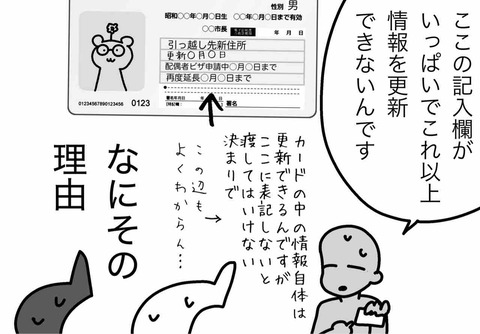 性別 男
昭和○○年○月○日生 ○○年○月○日まで有効
○○市長
年 月 日
引っ越し先新住所
更新○月○日
配偶者ビザ申請中○月○日まで
再度延長○月○日まで
署名
0123456789123456 0123
ここの記入欄が
いっぱいでこれ以上
情報を更新
できないんです
カードの中の情報自体は
更新できるんですが
ここに表記しないと
渡してはいけない
決まりで
この辺も
よくわからん…
なにその
理由